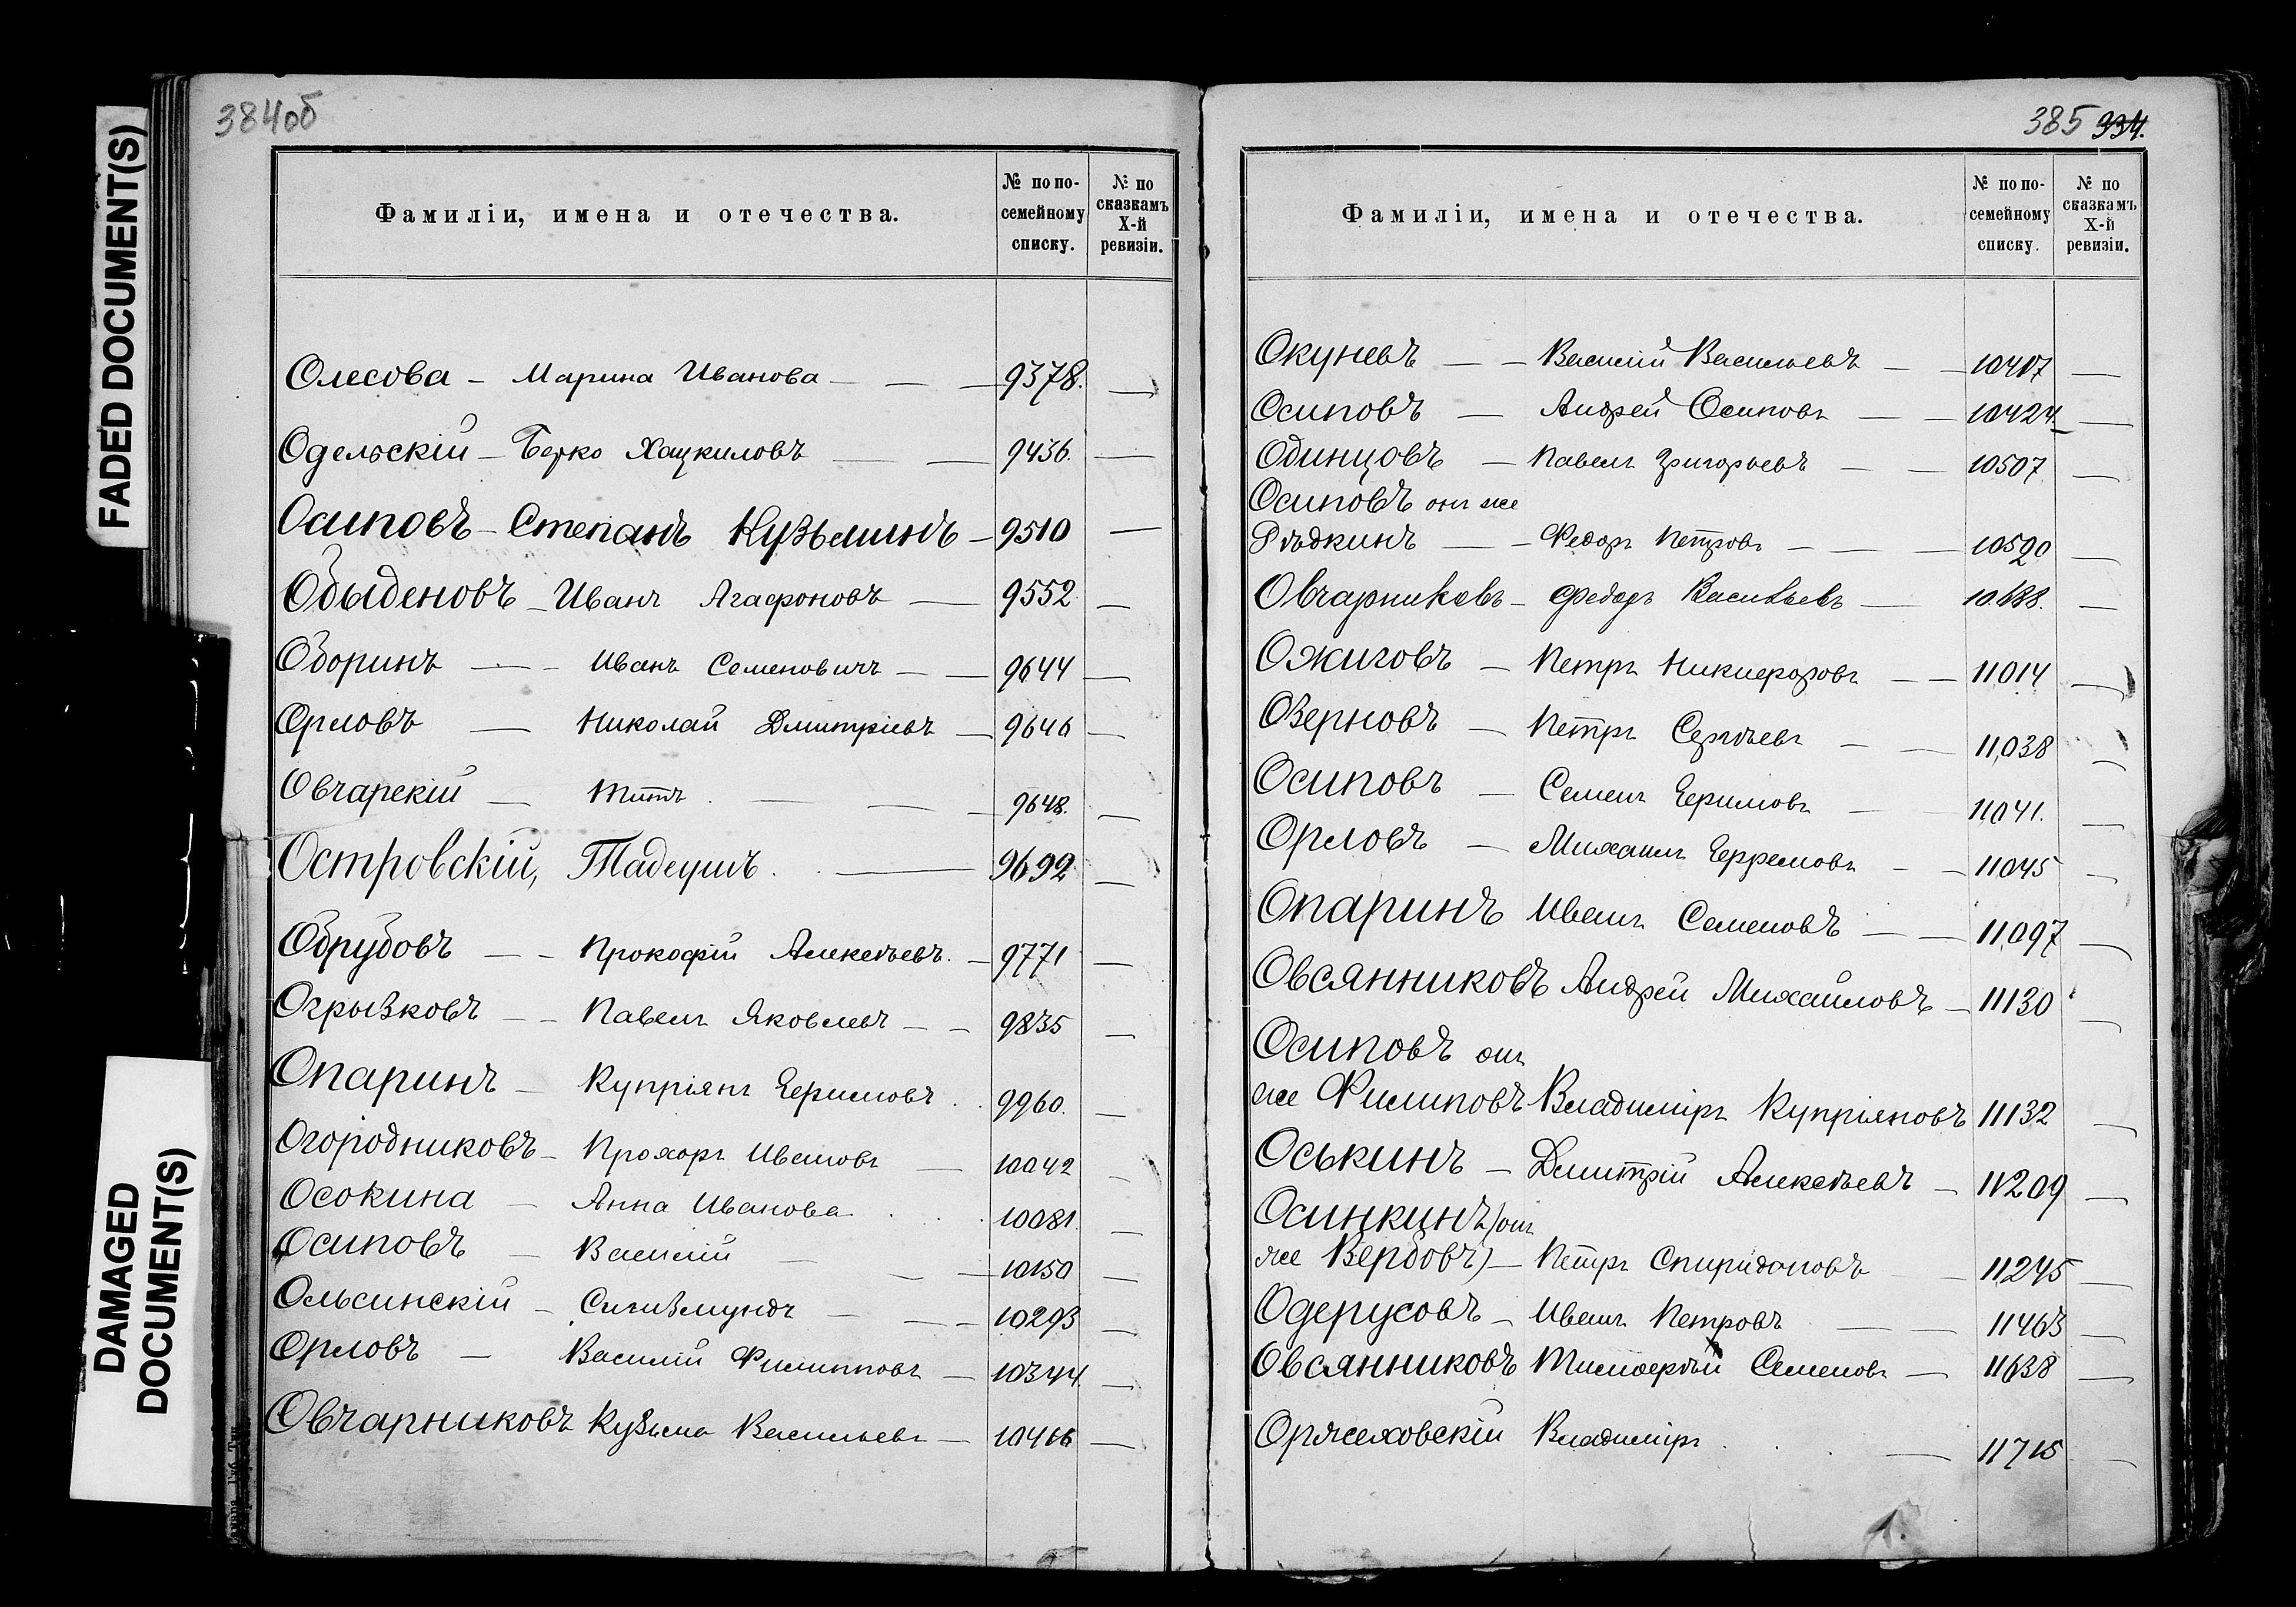 FADED DOCUMENT(S)
DAMAGED
DOCUMENT(S)
384об
Фамиліи, имена и отечества.
№ по по-
семейному
списку.
№ по
сказкамъ
X-й
ревизіи.
Олесова - Марина Иванова - - - 9378. -
Одельскій - Берко Хацкиловъ - - 9436. -
Осиповъ - Степанъ Кузьминъ - 9510 -
Обыденовъ - Иванъ Агафоновъ - 9552 -
Оборинъ - - Иванъ Семеновичъ - - 9644 -
Орловъ - Николай Дмитріевъ - 9646 -
Овчарскій - Титъ - - - 9648. -
Островскій, Тадеушъ. - 9692 -
Обрубовъ - - Прокофій Алексѣевъ. - 9771 -
Огрызковъ - - Павелъ Яковлевъ - - 9835 -
Опаринъ - Купріянъ Ефимовъ 9960. -
Огородниковъ - Прохоръ Ивановъ - 10042 -
Осокина - Анна Иванова 10081. -
Осиповъ - Василій - - - 10150 -
Ольсинскій - Сигизмундъ - - - 10293 -
Орловъ - Василій Филипповъ - 10344. -
Овчарниковъ Кузьма Васильевъ - 10416 -
385 334.
Фамиліи, имена и отечества.
№ по по-
семейному
списку.
№ по
сказкамъ
X-й
ревизіи.
Окуневъ - - Василій Васильевъ - - 10417 -
Осиповъ - Андрей Осиповъ - - 10424. -
Одинцовъ - Павелъ Григорьевъ - - 10507 -
Осиповъ онъ же
Рѣдкинъ - - Федоръ Петровъ - - - 10590 -
Овчарниковъ - Федоръ Васильевъ - 10.688. -
Ожиговъ - Петръ Никифоровъ - - 11014 -
Озерновъ - Петръ Сергѣевъ - - 11,038 -
Осиповъ - Семенъ Ефимовъ - 11041. -
Орловъ - Михаилъ Ефремовъ - - 11045 -
Опаринъ Иванъ Семеновъ - - 11,097 -
Овсянниковъ Андрей Михайловъ - 11130 -
Осиповъ онъ
же Филиповъ Владиміръ Купріяновъ 11132 -
Оськинъ - Дмитрій Алексѣевъ - 11209 -
Осинкинъ (онъ
же Вербовъ) - Петръ Спиридоновъ - 11,245 -
Одерусовъ - Иванъ Петровъ - - 11463 -
Овсянниковъ Тимофей Семеновъ - 11638 -
Оржеховскій Владиміръ - 11715 -